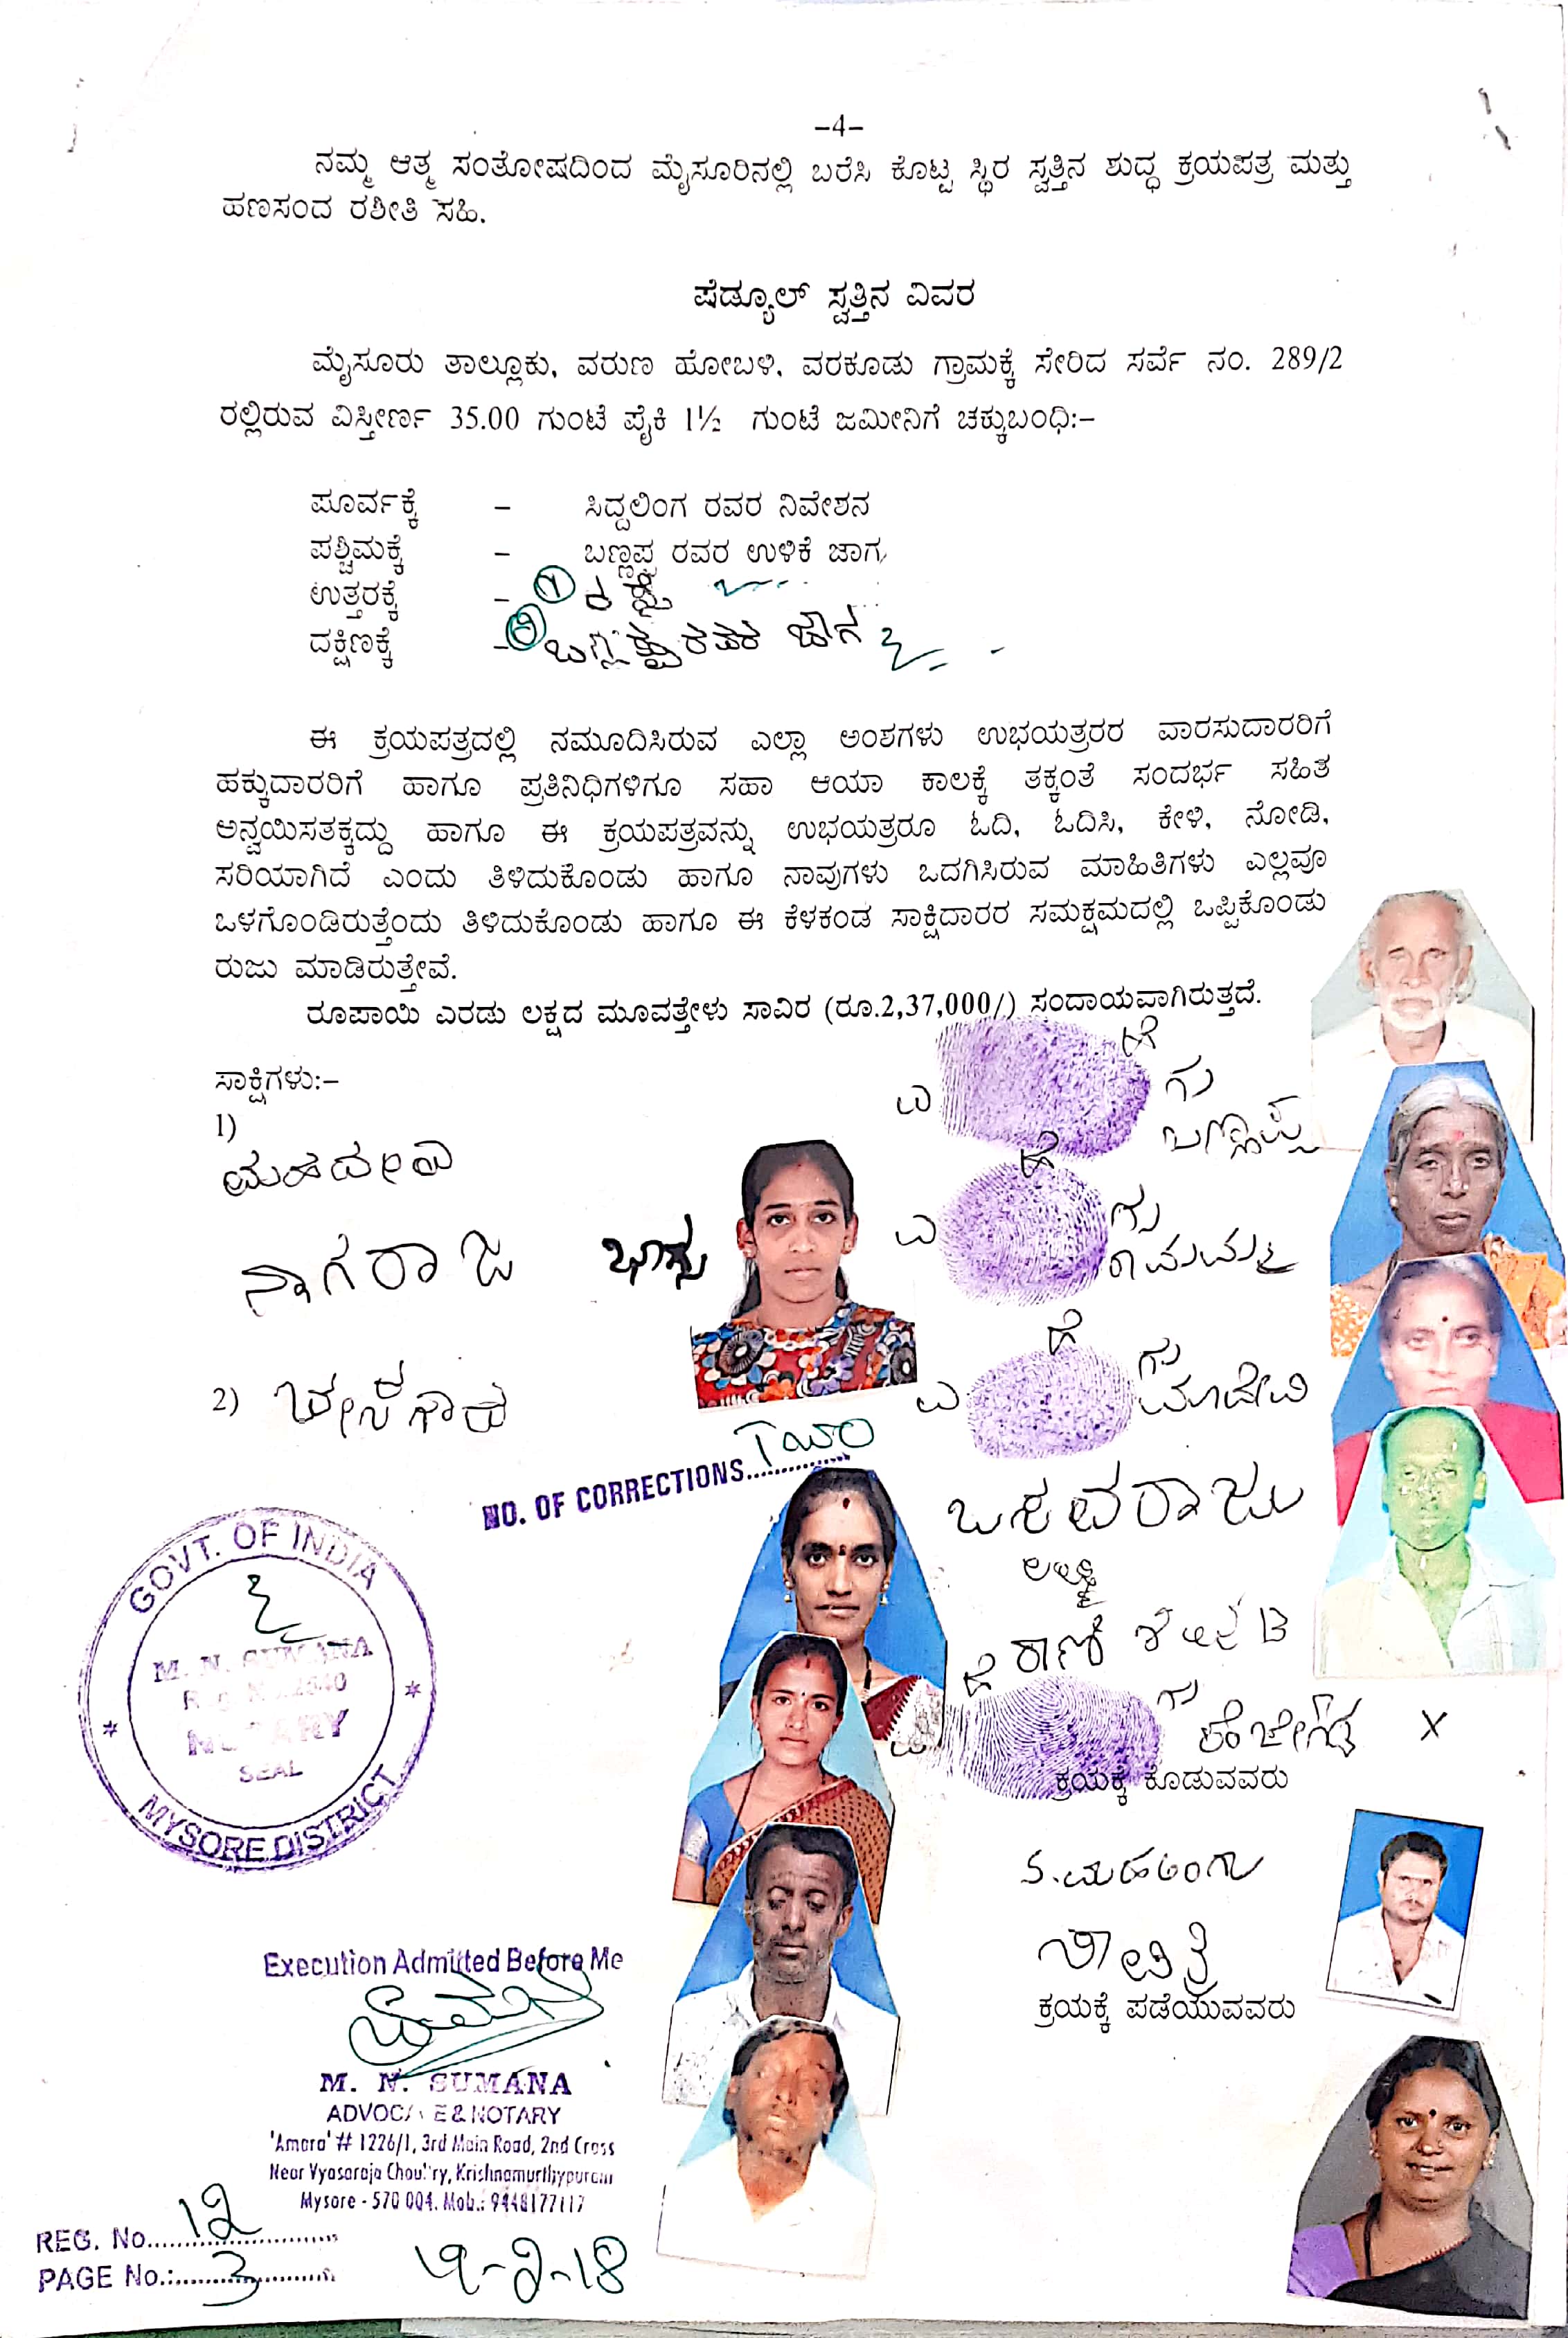 -4-
ನಮ್ಮ ಆತ್ಮ ಸಂತೋಷದಿಂದ ಮೈಸೂರಿನಲ್ಲಿ ಬರೆಸಿ ಕೊಟ್ಟ ಸ್ಥಿರ ಸ್ವತ್ತಿನ ಶುದ್ಧ ಕ್ರಯಪತ್ರ ಮತ್ತು
ಹಣಸಂದ ರಶೀತಿ ಸಹಿ.
ಷೆಡ್ಯೂಲ್ ಸ್ವತ್ತಿನ ವಿವರ
ಮೈಸೂರು ತಾಲ್ಲೂಕು, ವರುಣ ಹೋಬಳಿ, ವರಕೂಡು ಗ್ರಾಮಕ್ಕೆ ಸೇರಿದ ಸರ್ವೆ ನಂ. 289/2
ರಲ್ಲಿರುವ ವಿಸ್ತೀರ್ಣ 35.00 ಗುಂಟೆ ಪೈಕಿ 1½ ಗುಂಟೆ ಜಮೀನಿಗೆ ಚಕ್ಕುಬಂಧಿ:-
ಪೂರ್ವಕ್ಕೆ - ಸಿದ್ದಲಿಂಗ ರವರ ನಿವೇಶನ
ಪಶ್ಚಿಮಕ್ಕೆ - ಬಣ್ಣಪ್ಪ ರವರ ಉಳಿಕೆ ಜಾಗ
ಉತ್ತರಕ್ಕೆ - ರಸ್ತೆ
ದಕ್ಷಿಣಕ್ಕೆ - ಬಣ್ಣಪ್ಪರವರ ಜಾಗ
ಈ ಕ್ರಯಪತ್ರದಲ್ಲಿ ನಮೂದಿಸಿರುವ ಎಲ್ಲಾ ಅಂಶಗಳು ಉಭಯತ್ರರರ ವಾರಸುದಾರರಿಗೆ
ಹಕ್ಕುದಾರರಿಗೆ ಹಾಗೂ ಪ್ರತಿನಿಧಿಗಳಿಗೂ ಸಹಾ ಆಯಾ ಕಾಲಕ್ಕೆ ತಕ್ಕಂತೆ ಸಂದರ್ಭ ಸಹಿತ
ಅನ್ವಯಿಸತಕ್ಕದ್ದು ಹಾಗೂ ಈ ಕ್ರಯಪತ್ರವನ್ನು ಉಭಯತ್ರರೂ ಓದಿ, ಓದಿಸಿ, ಕೇಳಿ, ನೋಡಿ,
ಸರಿಯಾಗಿದೆ ಎಂದು ತಿಳಿದುಕೊಂಡು ಹಾಗೂ ನಾವುಗಳು ಒದಗಿಸಿರುವ ಮಾಹಿತಿಗಳು ಎಲ್ಲವೂ
ಒಳಗೊಂಡಿರುತ್ತೆಂದು ತಿಳಿದುಕೊಂಡು ಹಾಗೂ ಈ ಕೆಳಕಂಡ ಸಾಕ್ಷಿದಾರರ ಸಮಕ್ಷಮದಲ್ಲಿ ಒಪ್ಪಿಕೊಂಡು
ರುಜು ಮಾಡಿರುತ್ತೇವೆ.
ರೂಪಾಯಿ ಎರಡು ಲಕ್ಷದ ಮೂವತ್ತೇಳು ಸಾವಿರ (ರೂ.2,37,000/) ಸಂದಾಯವಾಗಿರುತ್ತದೆ.
ಸಾಕ್ಷಿಗಳು:-
ಎ ಹೆ ಗು
ಬಣ್ಣಪ್ಪ
1)
ಎ ಹೆ ಗು
ನಾಗರಾಜ ಭಾಗ್ಯ
ಎ ಹೆ ಗು
ಮಾದೇವಿ
2)
NO. OF CORRECTIONS Two
ಬಸವರಾಜು
ಲಕ್ಷ್ಮಿ
ರಾಣಿ
ಹೆ ಗು
X
ಕ್ರಯಕ್ಕೆ ಕೊಡುವವರು
GOVT. OF INDIA
M. N. SUMANA
NOTARY
SEAL
MYSORE DISTRICT
ಕ್ರಯಕ್ಕೆ ಪಡೆಯುವವರು
Execution Admitted Before Me
M. N. SUMANA
ADVOCATE & NOTARY
'Amara' # 1226/1, 3rd Main Road, 2nd Cross
Near Vyasaraja Choultry, Krishnamurthypuram
Mysore - 570 004. Mob.: 9448177117
REG. No. 12
PAGE No.: 3